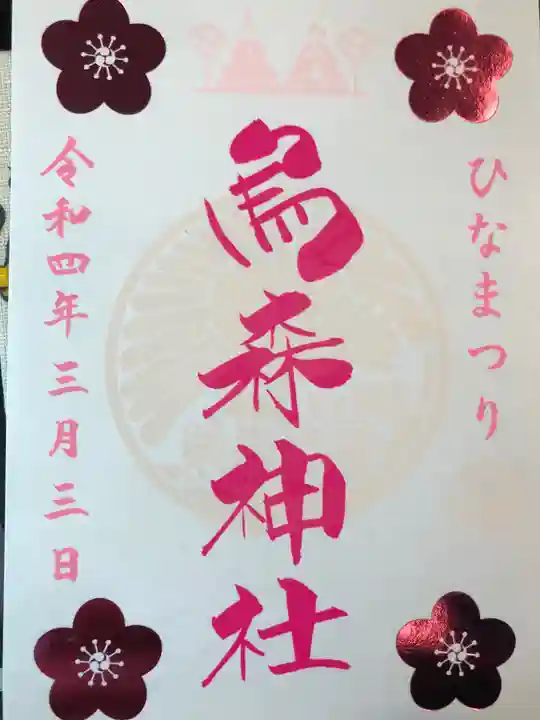 ひなまつり
烏森神社
令和四年三月三日